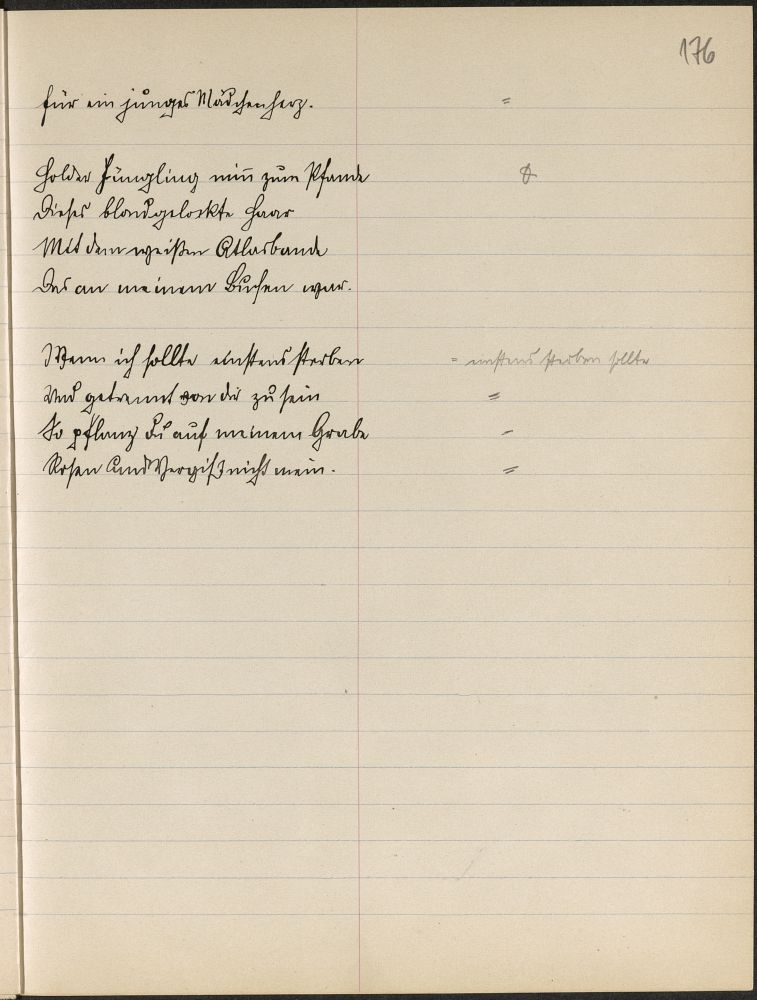 176
für ein junges Mädchenherz. =
Holder Jüngling nim̄ zum Pfande
Dieses blondgelockte Haar
Mit dem weißen Atlasbande
Das an meinem Busen war.
Wenn ich sollte einstens sterben = einstens sterben sollte
Und getrennt von dir zu sein =
So pflanz du auf meinem Grabe –
Rosen und Vergißnichtmein. =